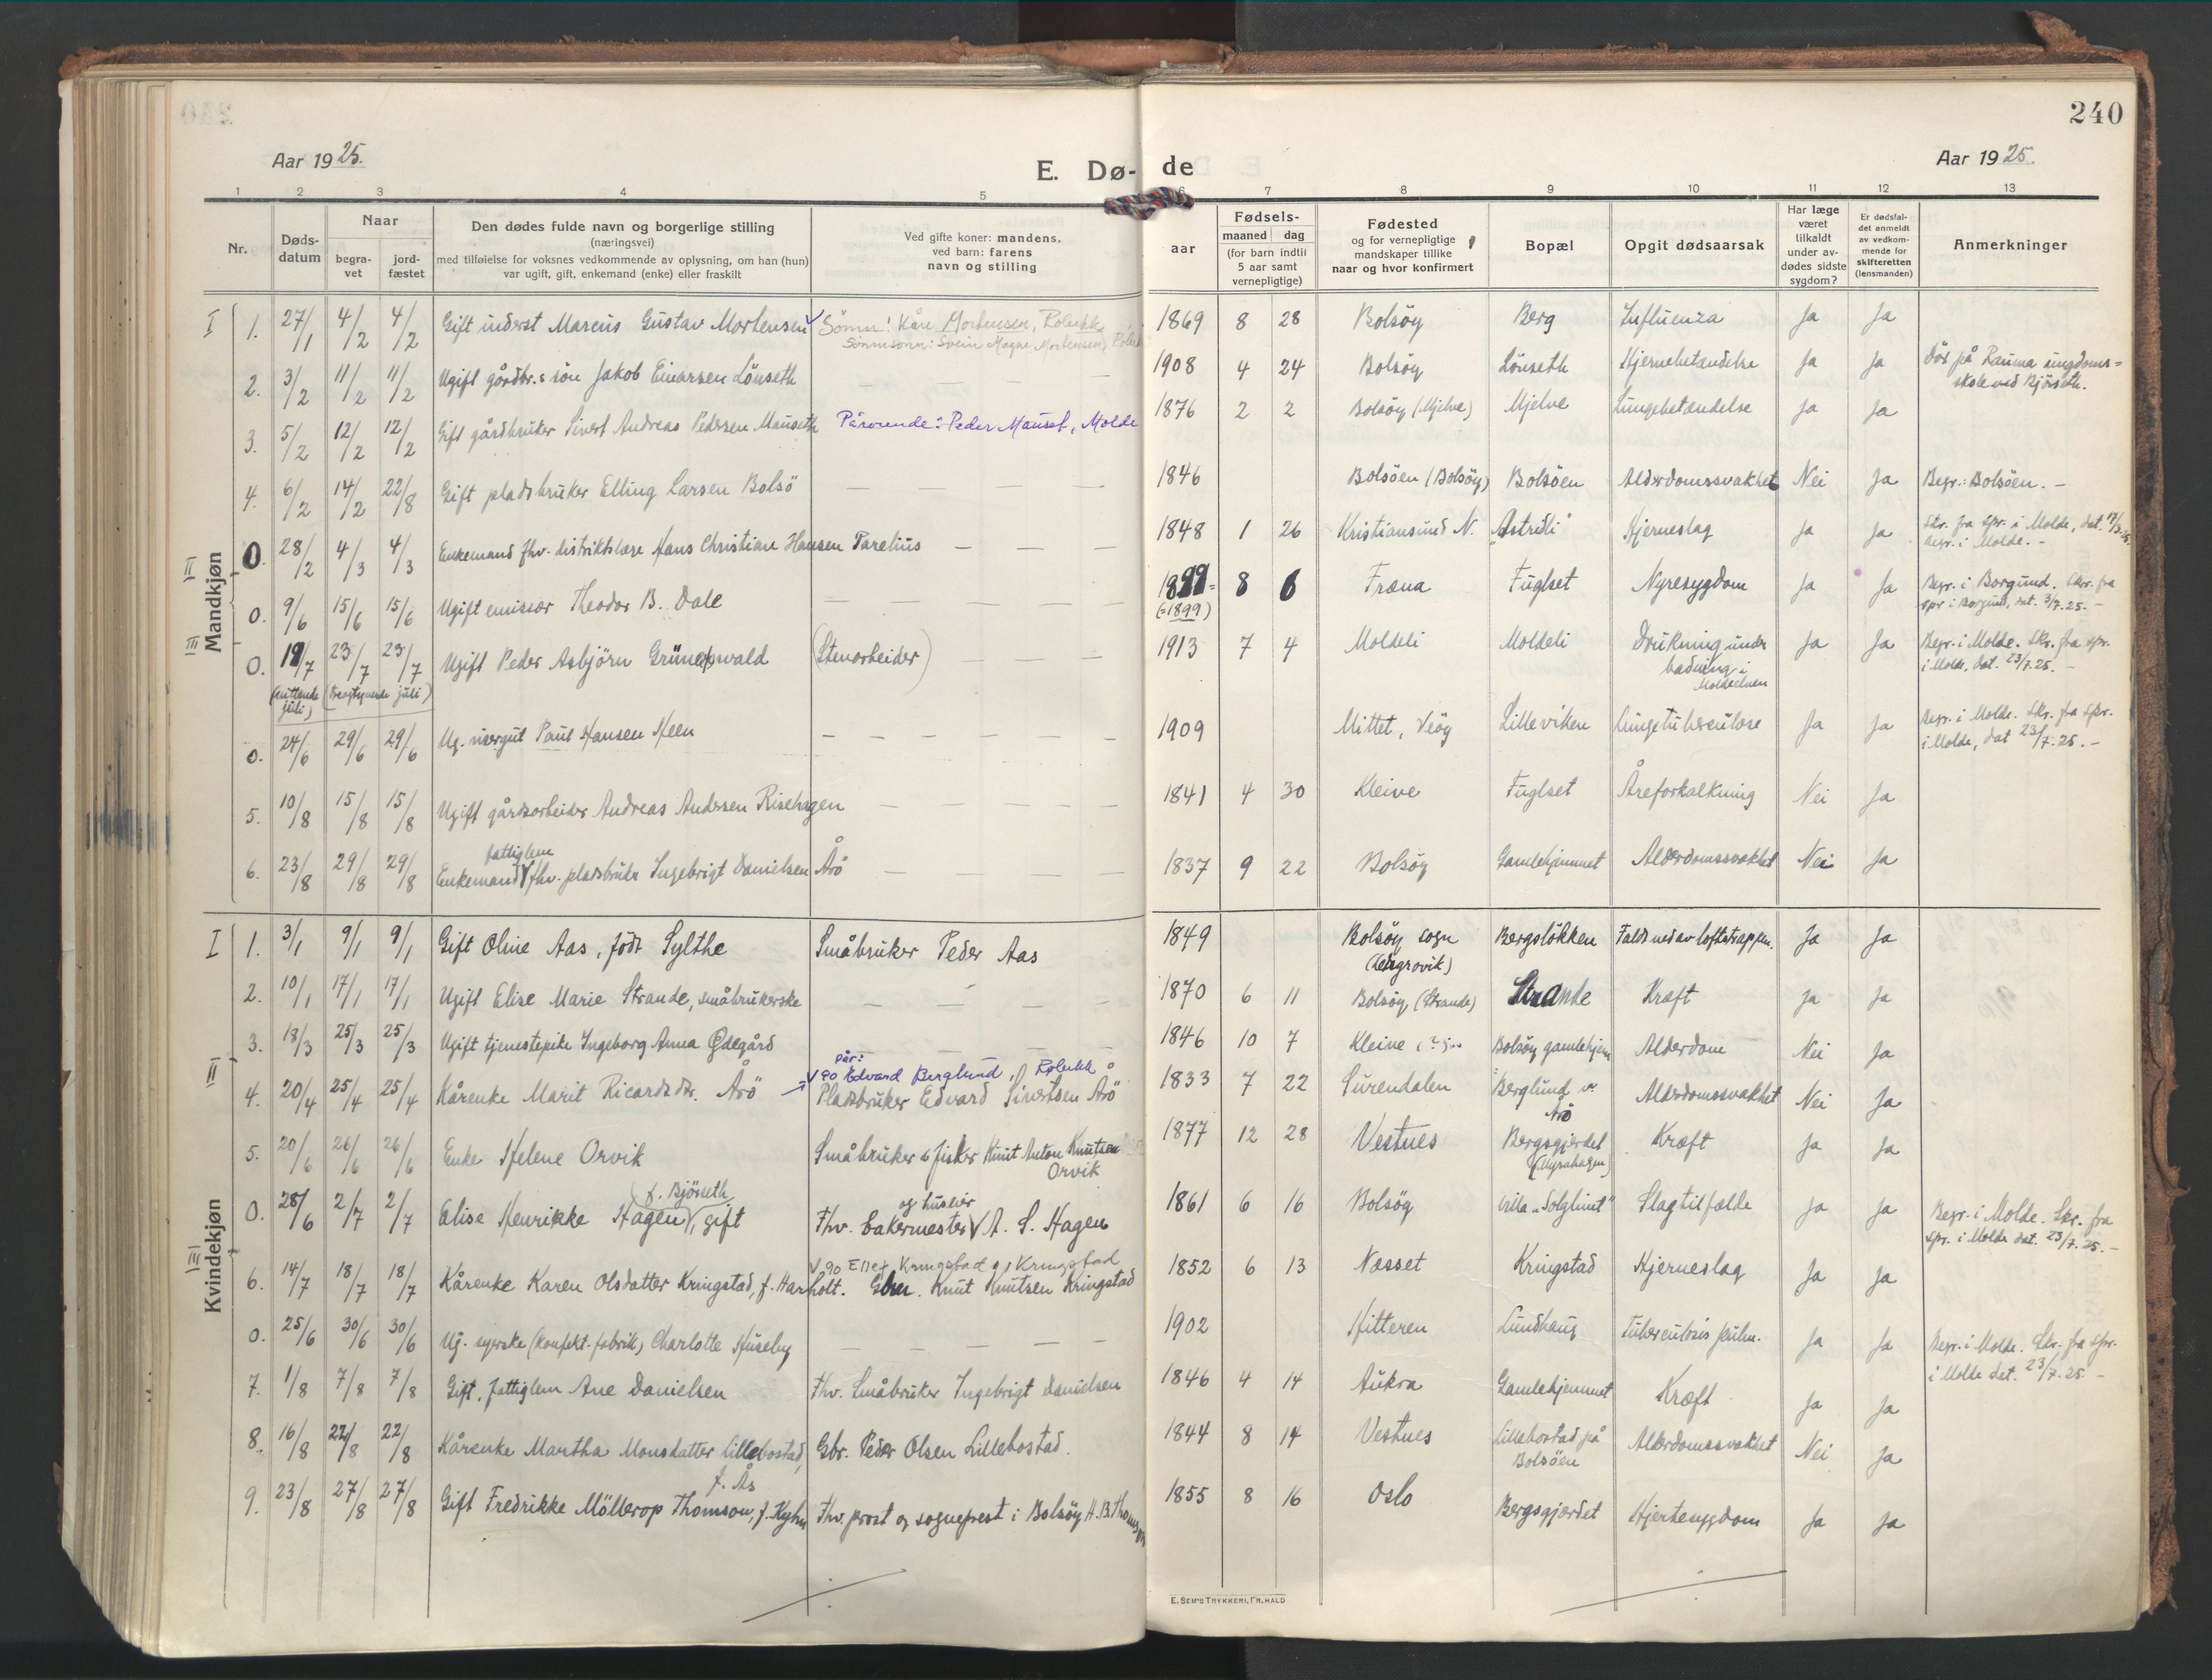 240
Aar 1925.
E. Dø-de
Aar 1925.
1 2 3 4 5 6 7 8 9 10 11 12 13
Nr.
Døds-datum
Naar
begra-vet
jord-fæstet
Den dødes fulde navn og borgerlige stilling
(næringsvei)
med tilføielse for voksnes vedkommende av oplysning, om han (hun)
var ugift, gift, enkemand (enke) eller fraskilt
Ved gifte koner: mandens,
ved barn: farens
navn og stilling
Fødsels-
aar
maaned dag
(for barn indtil
5 aar samt
vernepligtige)
Fødested
og for vernepligtige
mandskaper tillike
naar og hvor konfirmert
Bopæl
Opgit dødsaarsak
Har læge
været
tilkaldt
under av-
dødes sidste
sygdom?
Er dødsfal-
det anmeldt
av vedkom-
mende for
skifteretten
(lensmanden)
Anmerkninger
Mandkjøn
I 1. 27/1 4/2 4/2 Gift inderst Marcus Gustav Mortensen Sønn: Kåre Mortensen, Rolvkk 1869 8 28 Bolsøy Berg Influenza Ja Ja
Sønnesønn: Svein Magne Mortensen,
2. 3/2 11/2 11/2 Ugift gårdbr.s søn Jakob Einarsen Lönseth — — — 1908 4 24 Bolsøy Lönseth Hjernebetændelse Ja Ja Död på Rauma ungdoms=
skole ved Björseth.
3. 5/2 12/2 12/2 Gift gårdbruker Sivert Andreas Pedersen Mauseth Pårørende: Peder Mauset, Molde 1876 2 2 Bolsöy (Mjelve) Mjelve Lungebetændelse Ja Ja
4. 6/2 14/2 22/8 Gift pladsbruker Elling Larsen Bolsö — — — — 1846 Bolsöen (Bolsöy) Bolsöen Alderdomssvakhet Nei Ja Begr.: Bolsöen. –
II
0. 28/2 4/3 4/3 Enkemand fhv. distriktslæge Hans Christian Hansen Parelius — — — 1848 1 26 Kristiansund N. "Astridli" Hjerneslag Ja Ja Skr. fra spr. i Molde, dat. 17/3.25.
Begr. i Molde. –
0. 9/6 15/6 15/6 Ugift emissær Theodor B. Dale — — — — 1899= 8 6 Fræna Fuglset Nyresygdom Ja Ja Begr. i Borgund. Skr. fra
(=1899) spr. i Borgund, dat. 3/7.25. –
III
0. 19/7 23/7 23/7 Ugift Peder Asbjörn Grünewald (Stenarbeider) — — — 1913 7 4 Moldeli Moldeli Drukning under Ja Ja Begr. i Molde. Skr. fra spr.
badning i i Molde, dat. 23/7.25. –
Moldeelven
(nittende juli) (treogtyvende juli)
0. 24/6 29/6 29/6 Ug. Paul Hansen Heen — — — — 1909 Mittet, Veöy Lilleviken Lungetuberculose Ja Ja Begr. i Molde. Skr. fra spr.
i Molde, dat 23/7.25. –
5. 10/8 15/8 15/8 Ugift gårdsarbeider Andreas Andersen Risehagen — — — — 1841 4 30 Kleive Fuglset Åreforkalkning Nei Ja
fattiglem
6. 23/8 29/8 29/8 Enkemand fhv. pladsbruker Ingebrigt Danielsen Årö — — — 1837 9 22 Bolsöy Gamlehjemmet Alderdomssvakhet Nei Ja
Kvindekjøn
I 1. 3/1 9/1 9/1 Gift Oline Aas, född Sylthe Småbruker Peder Aas 1849 Bolsöy sogn Bergslökken Faldt ned av loftstrappen. Ja Ja
2. 10/1 17/1 17/1 Ugift Elise Marie Strande, småbrukerske — — — — 1870 6 11 Bolsöy (Strande) Strande Kræft Ja Ja
3. 18/3 25/3 25/3 Ugift tjenestepike Ingeborg Anna Ödegård — — — — 1846 10 7 Kleive Bolsöy gamlehjem Alderdom Nei Ja
II
pår:
Edvard Berglund, Rolvkk
4. 20/4 25/4 25/4 Kårenke Marit Ricardsdtr. Årö Pladsbruker Edvard Sivertsen Årö 1833 7 22 Surendalen Berglund v. Alderdomssvakhet Nei Ja
Årö
5. 20/6 26/6 26/6 Enke Helene Orvik Småbruker & fisker Knut Anton Knutsen 1877 12 28 Vestnes Bergsgjerdet Kræft Ja Ja
Orvik (Myrahagen)
f. Björseth
og huseier
0. 28/6 2/7 2/7 Elise Henrikke Hagen, gift Fhv. bakermester A. S. Hagen 1861 6 16 Bolsöy villa "Solglimt" Slagtilfælde Ja Ja Begr. i Molde. Skr. fra
spr. i Molde dat. 23/7.25. –
III
Kringstad
6. 14/7 18/7 18/7 Kårenke Karen Olsdatter Kringstad, f. Harholt. Gbr. Knut Knutsen Kringstad 1852 6 13 Næsset Kringstad Hjerneslag Ja Ja
0. 25/6 30/6 30/6 Ug. syerske (konfekt. fabrik) Charlotte Huseby — — — — 1902 Hitteren Lundhaug Tuberculosis pulm. Ja Ja Begr. i Molde. Skr. fra spr.
i Molde dat. 23/7.25 –
7. 1/8 7/8 7/8 Gift, fattiglem Ane Danielsen Fhv. Småbruker Ingebrigt Danielsen 1846 4 14 Aukra Gamlehjemmet Kræft Ja Ja
8. 16/8 22/8 22/8 Kårenke Martha Monsdatter Lillebostad, Gbr. Peder Olsen Lillebostad. 1844 8 14 Vestnes Lillebostad på Alderdomssvakhet Nei Ja
f. Ås Bolsöen
9. 23/8 27/8 27/8 Gift Fredrikke Möllerop Thomson, f. Kyhn Fhv. prost og sogneprest i Bolsöy H. B. Thomson 1855 8 16 Oslo Bergsgjerdet Hjertesygdom Ja Ja
E. SEM'S TRYKKERI, FR.HALD